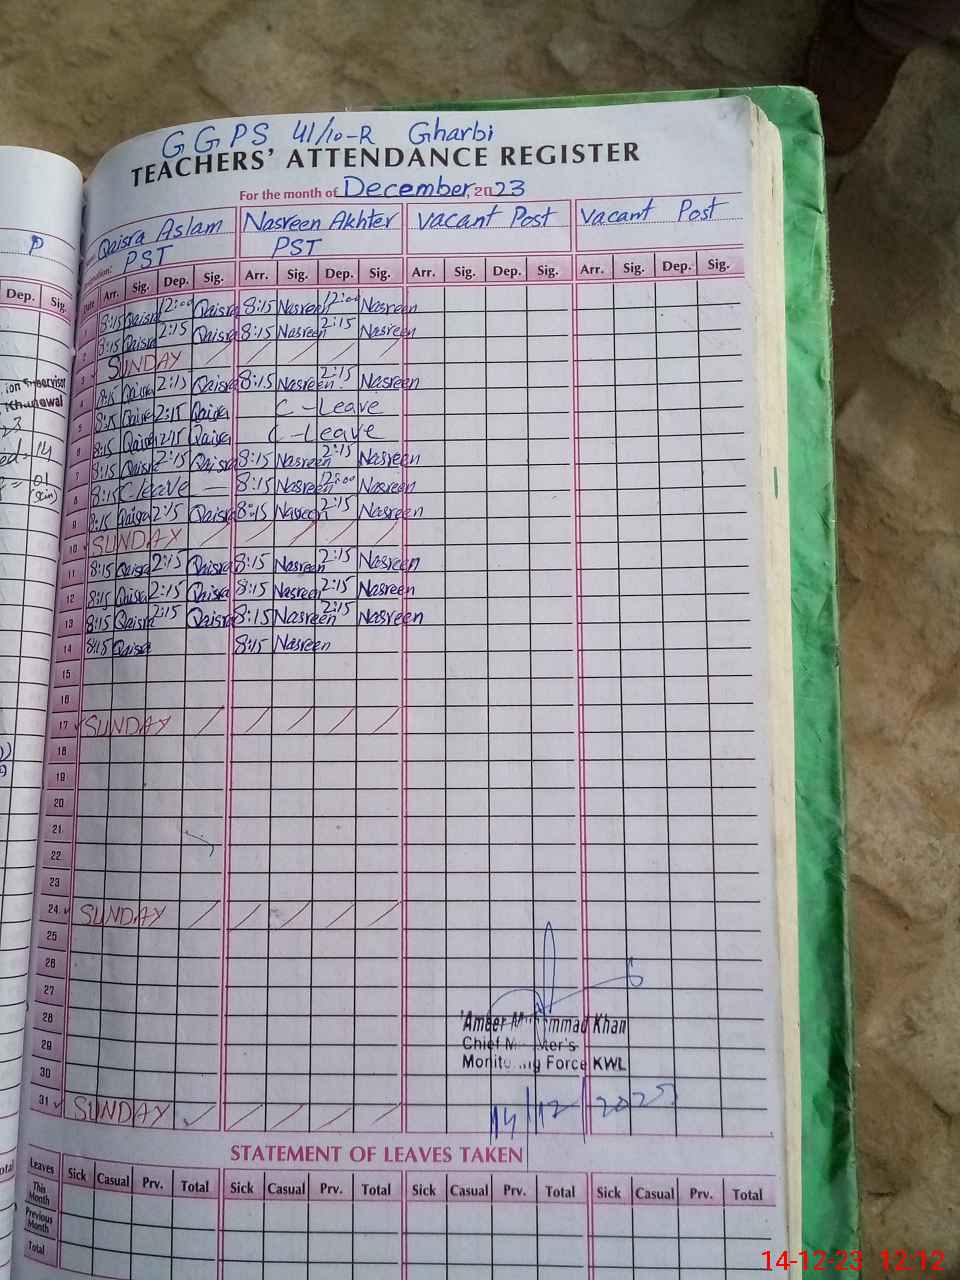 GGPS 41/10-R Gharbi
TEACHERS' ATTENDANCE REGISTER
For the month of December, 2023
Qaisra Aslam Nasreen Akhter Vacant Post Vacant Post
PST PST
Date Arr. Sig. Dep. Sig. Arr. Sig. Dep. Sig. Arr. Sig. Dep. Sig. Arr. Sig. Dep. Sig.
1 8:15 Qaisra 12:00 Qaisra 8:15 Nasreen 12:00 Nasreen
2 8:15 Qaisra 2:15 Qaisra 8:15 Nasreen 2:15 Nasreen
3 SUNDAY
4 8:15 Qaisra 2:15 Qaisra 8:15 Nasreen 2:15 Nasreen
5 8:15 Qaisra 2:15 Qaisra C-Leave
6 8:15 Qaisra 2:15 Qaisra C-Leave
7 8:15 Qaisra 2:15 Qaisra 8:15 Nasreen 2:15 Nasreen
8 8:15 C-leave — 8:15 Nasreen 12:00 Nasreen
9 8:15 Qaisra 2:15 Qaisra 8:15 Nasreen 2:15 Nasreen
10 SUNDAY
11 8:15 Qaisra 2:15 Qaisra 8:15 Nasreen 2:15 Nasreen
12 8:15 Qaisra 2:15 Qaisra 8:15 Nasreen 2:15 Nasreen
13 8:15 Qaisra 2:15 Qaisra 8:15 Nasreen 2:15 Nasreen
14 8:15 Qaisra 8:15 Nasreen
15
16
17 SUNDAY
18
19
20
21
22
23
24 SUNDAY
25
26
27
28
29
30
31 SUNDAY
Khan
Chief
Monitoring Force KWL
14/12/2023
STATEMENT OF LEAVES TAKEN
Leaves Sick Casual Prv. Total Sick Casual Prv. Total Sick Casual Prv. Total Sick Casual Prv. Total
This Month
Previous Month
Total
P
Dep. Sig.
14-12-23 12:12